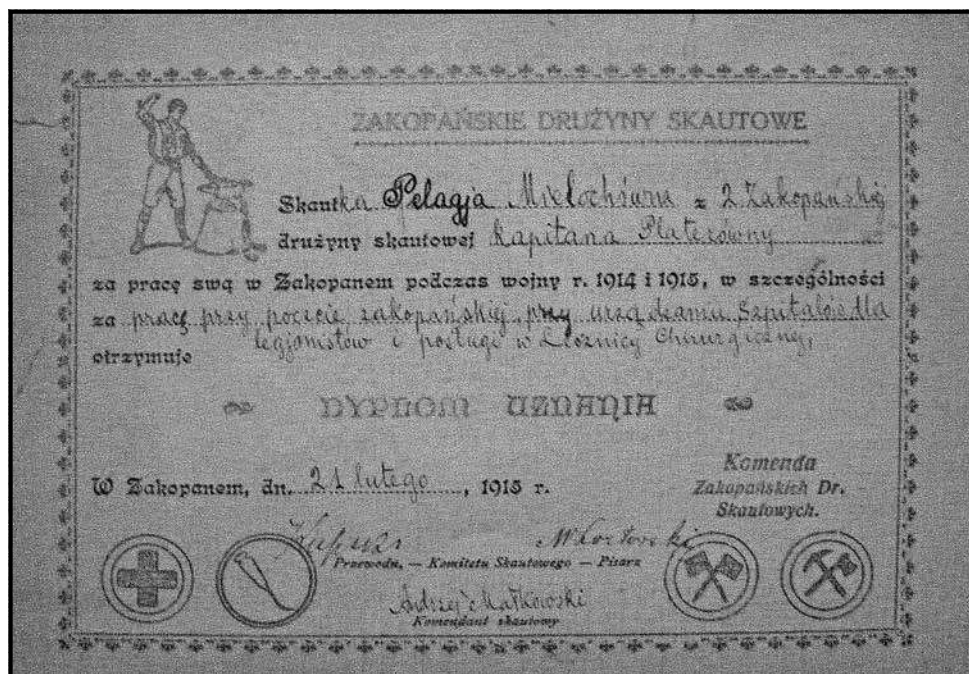 ZAKOPAŃSKIE DRUŻYNY SKAUTOWE
Skautka Pelagja z 2 Zakopańskiej
drużyny skautowej Kapitana Platerówny
za pracę swą w Zakopanem podczas wojny r. 1914 i 1915, w szczególności
za pracę przy poczcie zakopańskiej, przy urządzaniu Szpitalów dla
legjonistów i posługi w Lecznicy Chirurgicznej,
otrzymuje
DYPLOM UZNANIA
W Zakopanem, dn. 21 lutego, 1915 r.
Komenda
Zakopańskich Dr.
Skautowych.
Przewodn. — Komitetu Skautowego — Pisarz
Andrzej Małkowski
Komendant skautowy